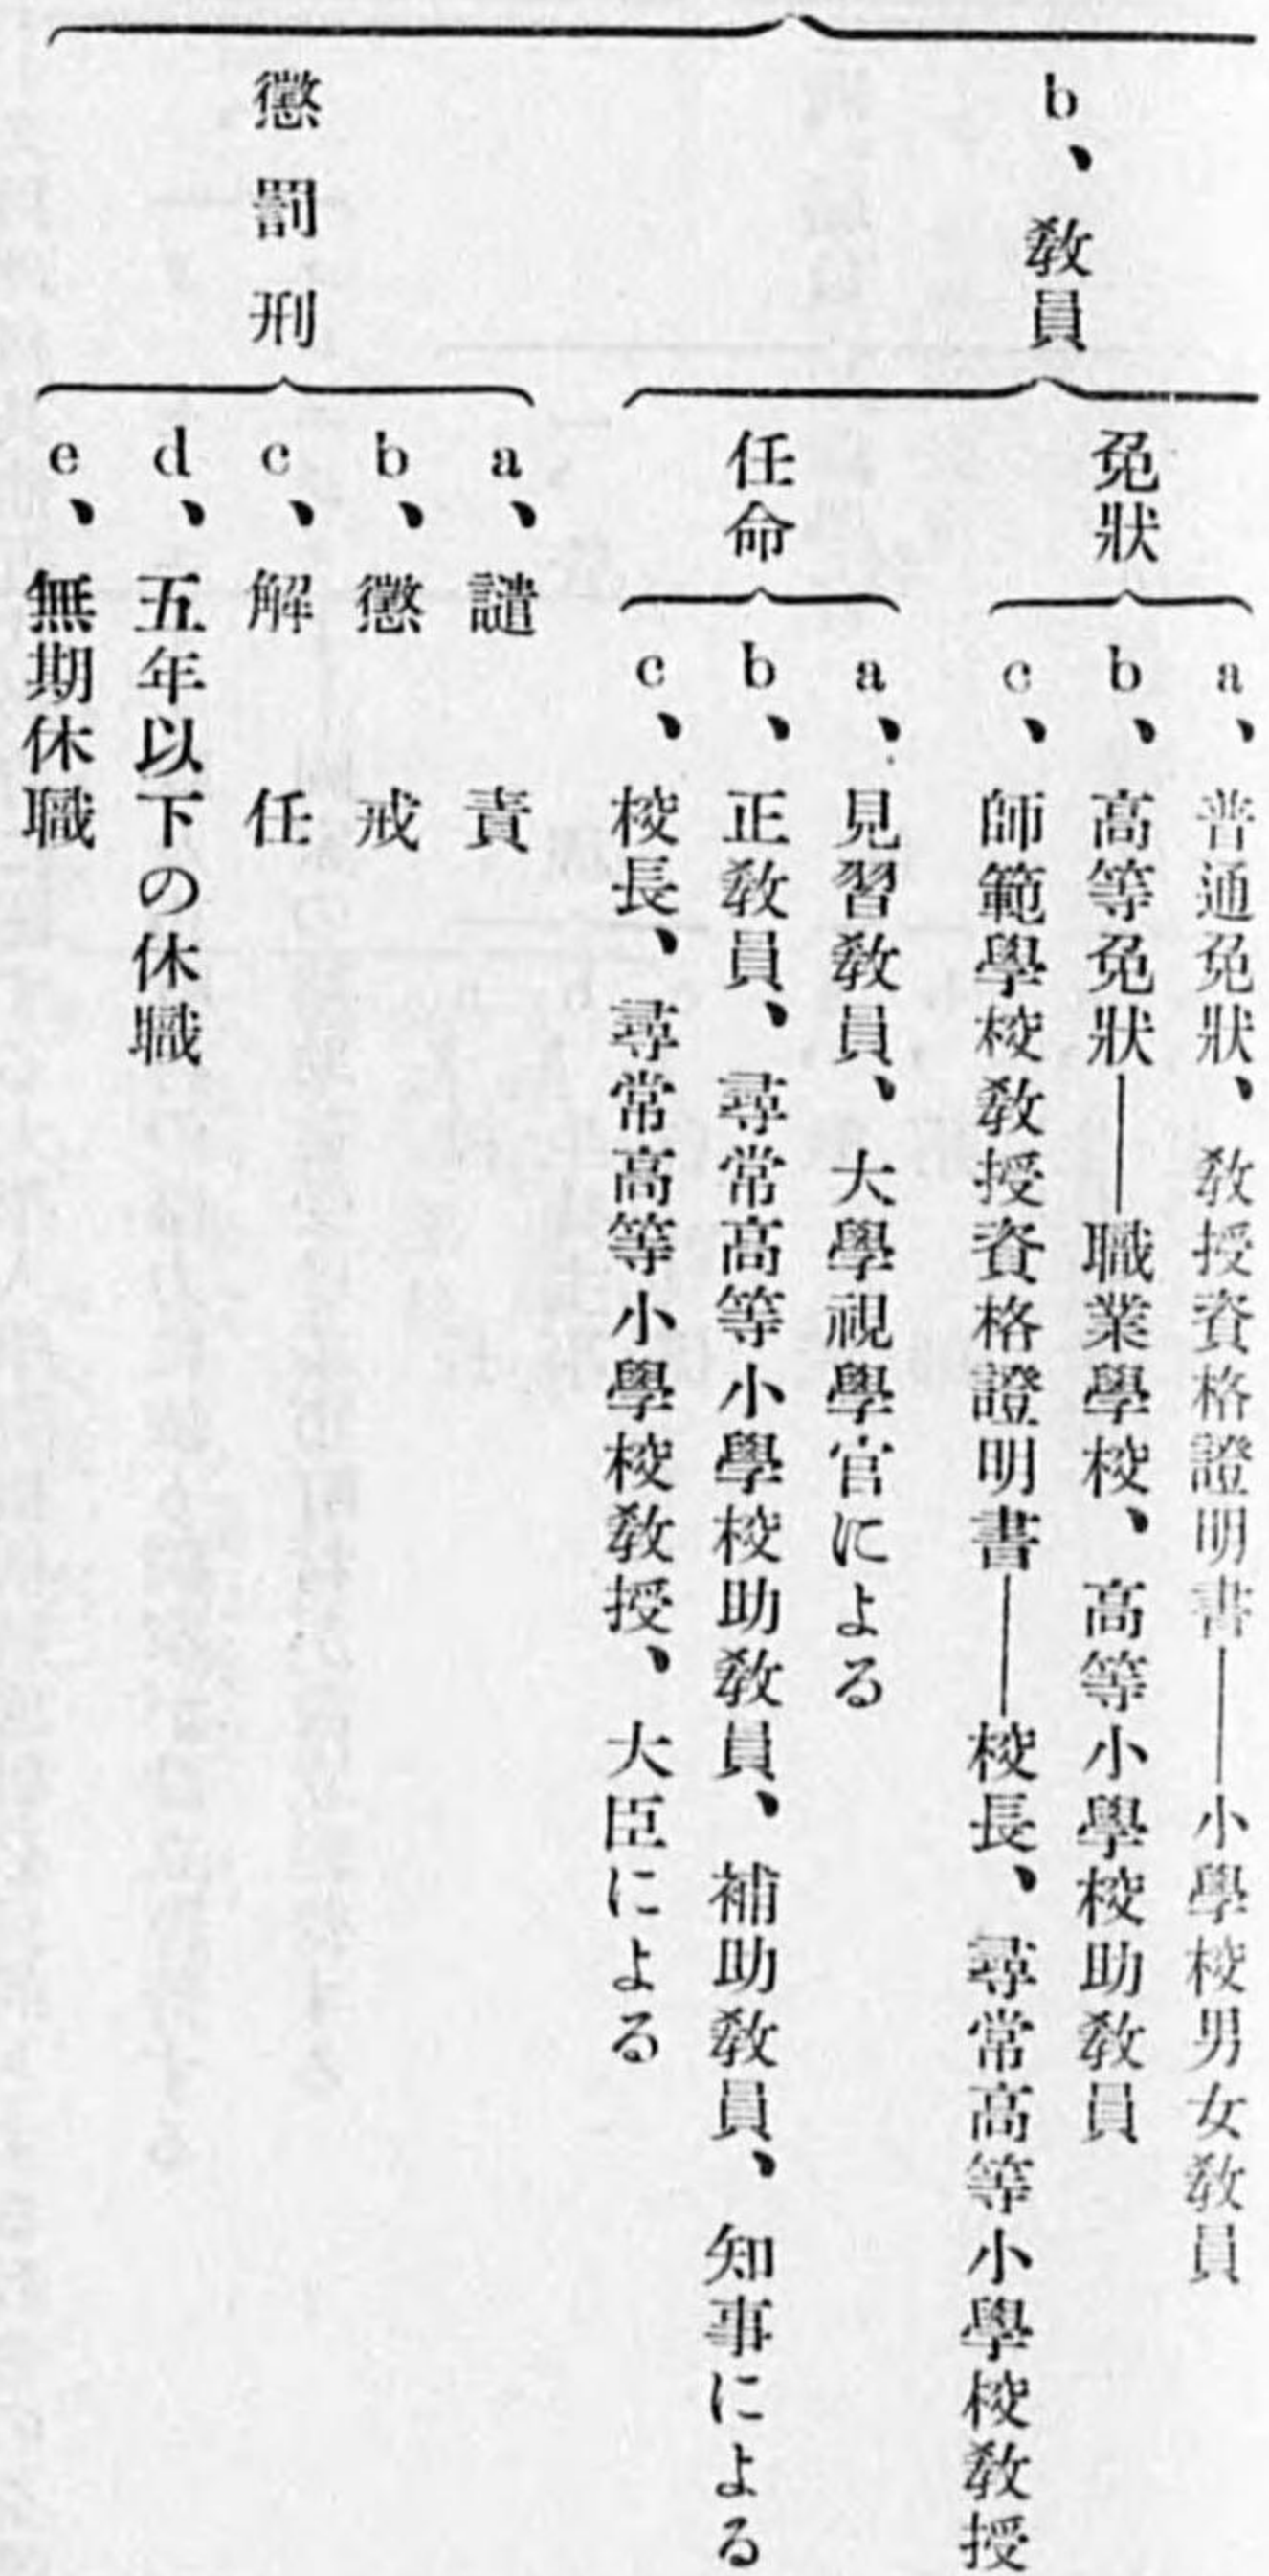 b、敎員
免狀
a、普通免狀、敎授資格證明書――小學校男女敎員
b、高等免狀――職業學校、高等小學校助敎員
c、師範學校敎授資格證明書――校長、尋常高等小學校敎授
任命
a、見習敎員、大學視學官による
b、正敎員、尋常高等小學校助敎員、補助敎員、知事による
c、校長、尋常高等小學校敎授、大臣による
懲罰刑
a、譴責
b、懲戒
c、解任
d、五年以下の休職
e、無期休職